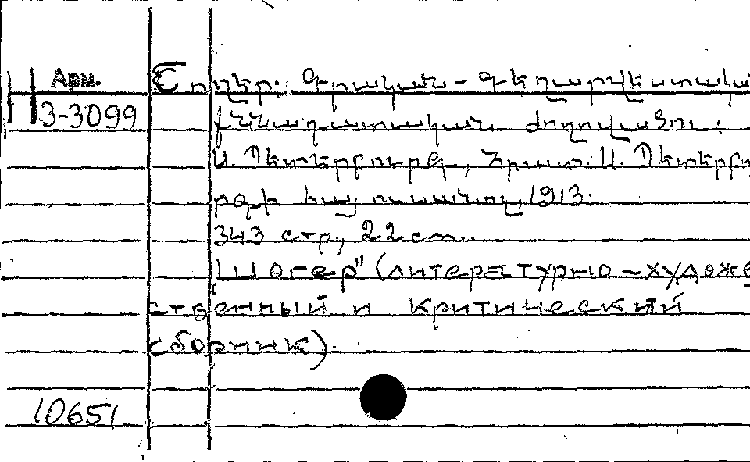 Арм.
3-3099
Շողեր: Գրական-գեղարվեստական
քննադատական ժողովածու:
Ս. Պետերբուրգ, Հրատ. Ս. Պետերբու
րգի հայ ուսանող, 1913.
343 стр, 22 см.
"Шогер" (литературно-художе
ственный и критический
сборник).
10651